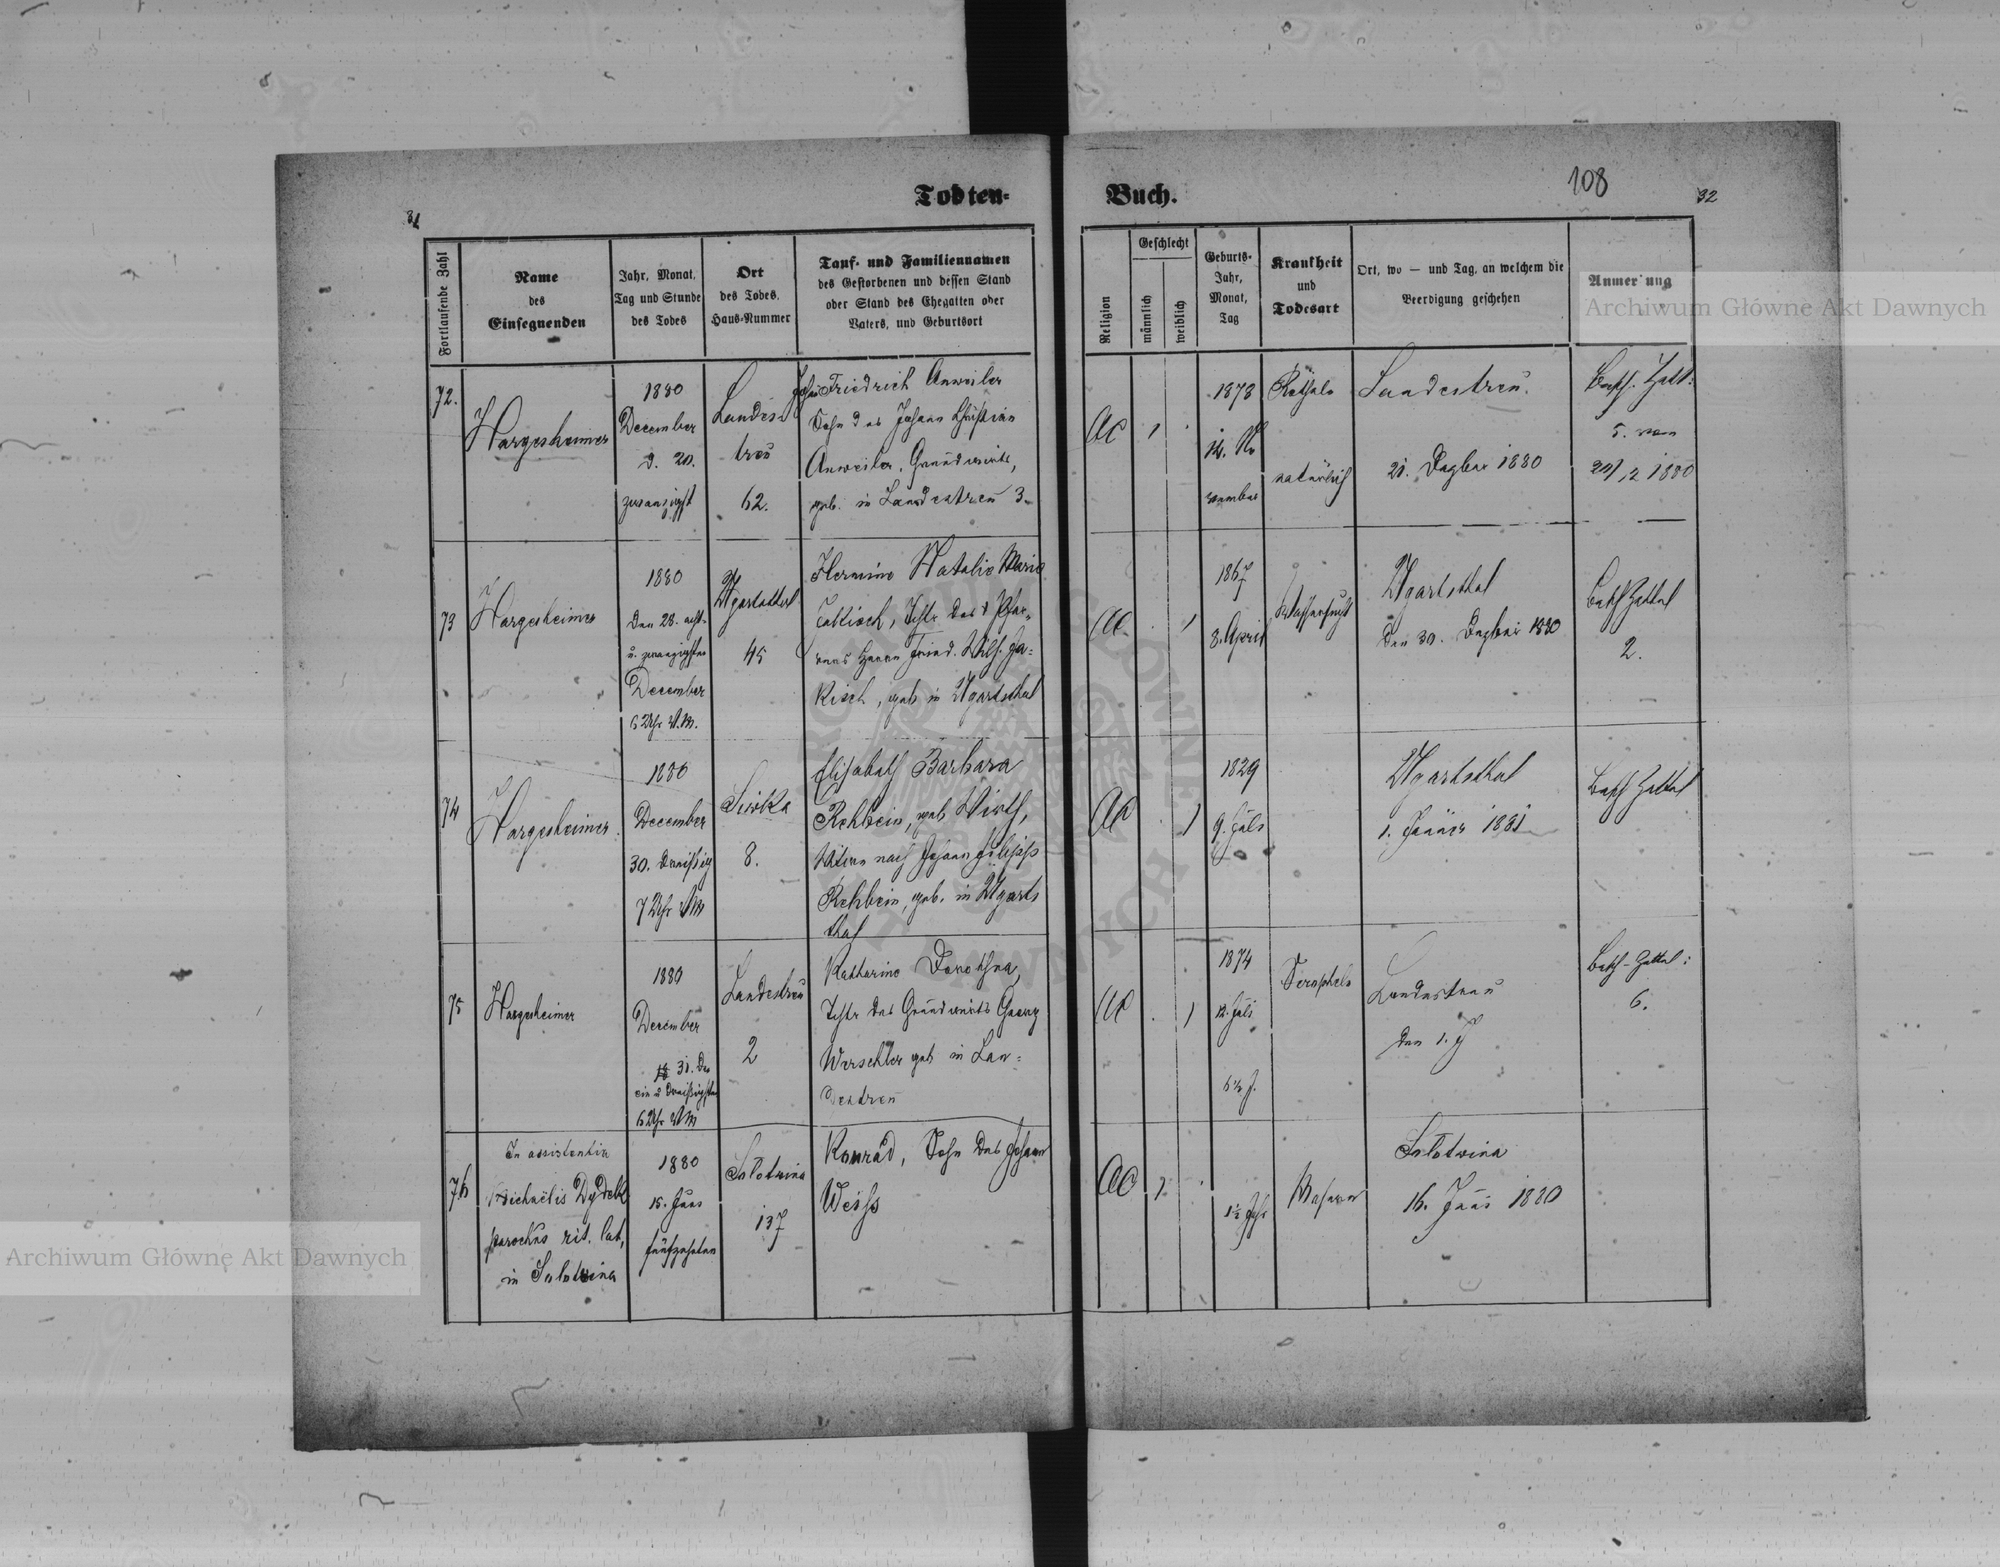 Todten-
Buch.
108
31
32
Fortlaufende Zahl
Name
des
Einsegnenden
Jahr, Monat,
Tag und Stunde
des Todes
Ort
des Todes,
Haus-Nummer
Tauf- und Familiennamen
des Gestorbenen und dessen Stand
oder Stand des Ehegatten oder
Vaters, und Geburtsort
Religion
Geschlecht
männlich
weiblich
Geburts-
Jahr,
Monat,
Tag
Krankheit
und
Todesart
Ort, wo — und Tag, an welchem die
Beerdigung geschehen
Anmerkung
Archiwum Główne Akt Dawnych
72.
Hargesheimer
1880
December
d. 20.
zwanzigst
Landes-
treu
62.
Friedrich Anweiler
Sohn des Johann Christian
Anweiler, Grundwirth,
geb. in Landestreu 3.
AC
1
1878
12. No
vember
Rötheln
natürlich
Landestreu.
21. Dezber 1880
5. von
1880
73
Hargesheimer
1880
Den 28. acht-
u. zwanzigsten
December
6 Uhr V.M.
Ugartsthal
45
Hermine Natalie Marie
Jakisch, Tchtr des Pfar-
rers Herrn Fried. Wilh. Ja-
kisch, geb in Ugartsthal
AC
1
1867
8. April
Wassersucht
Ugartsthal
den 30. Dezber 1880
2.
74
Hargesheimer
1880
December
30. dreißig
7 Uhr VM
Siwka
8.
Elisabeth Barbara
Rehbein, geb Wirth,
Witwe nach Johann
Rehbein, geb. in Ugarts
thal
AC
1
1829
9. Juli
Ugartsthal
1. Jänner 1881
75
Hargesheimer
1880
December
31. Den
ein u dreißigsten
6 Uhr VM
Landestreu
2
Katharine Dorothea,
Tchtr des Grundwirths Georg
Werschler geb in Lan-
destreu
AC
1
1874
12. Juli
6½ J.
Landestreu
den 1. J
6.
76
In assistentia
Michaelis
parochus rit. lat,
in Solotwina
1880
15. Juni
fünfzehnten
Solotwina
137
Konrad, Sohn des Johann
Weiss
AC
1
1½ Jahr
Masern
Solotwina
16. Juni 1880
Archiwum Główne Akt Dawnych